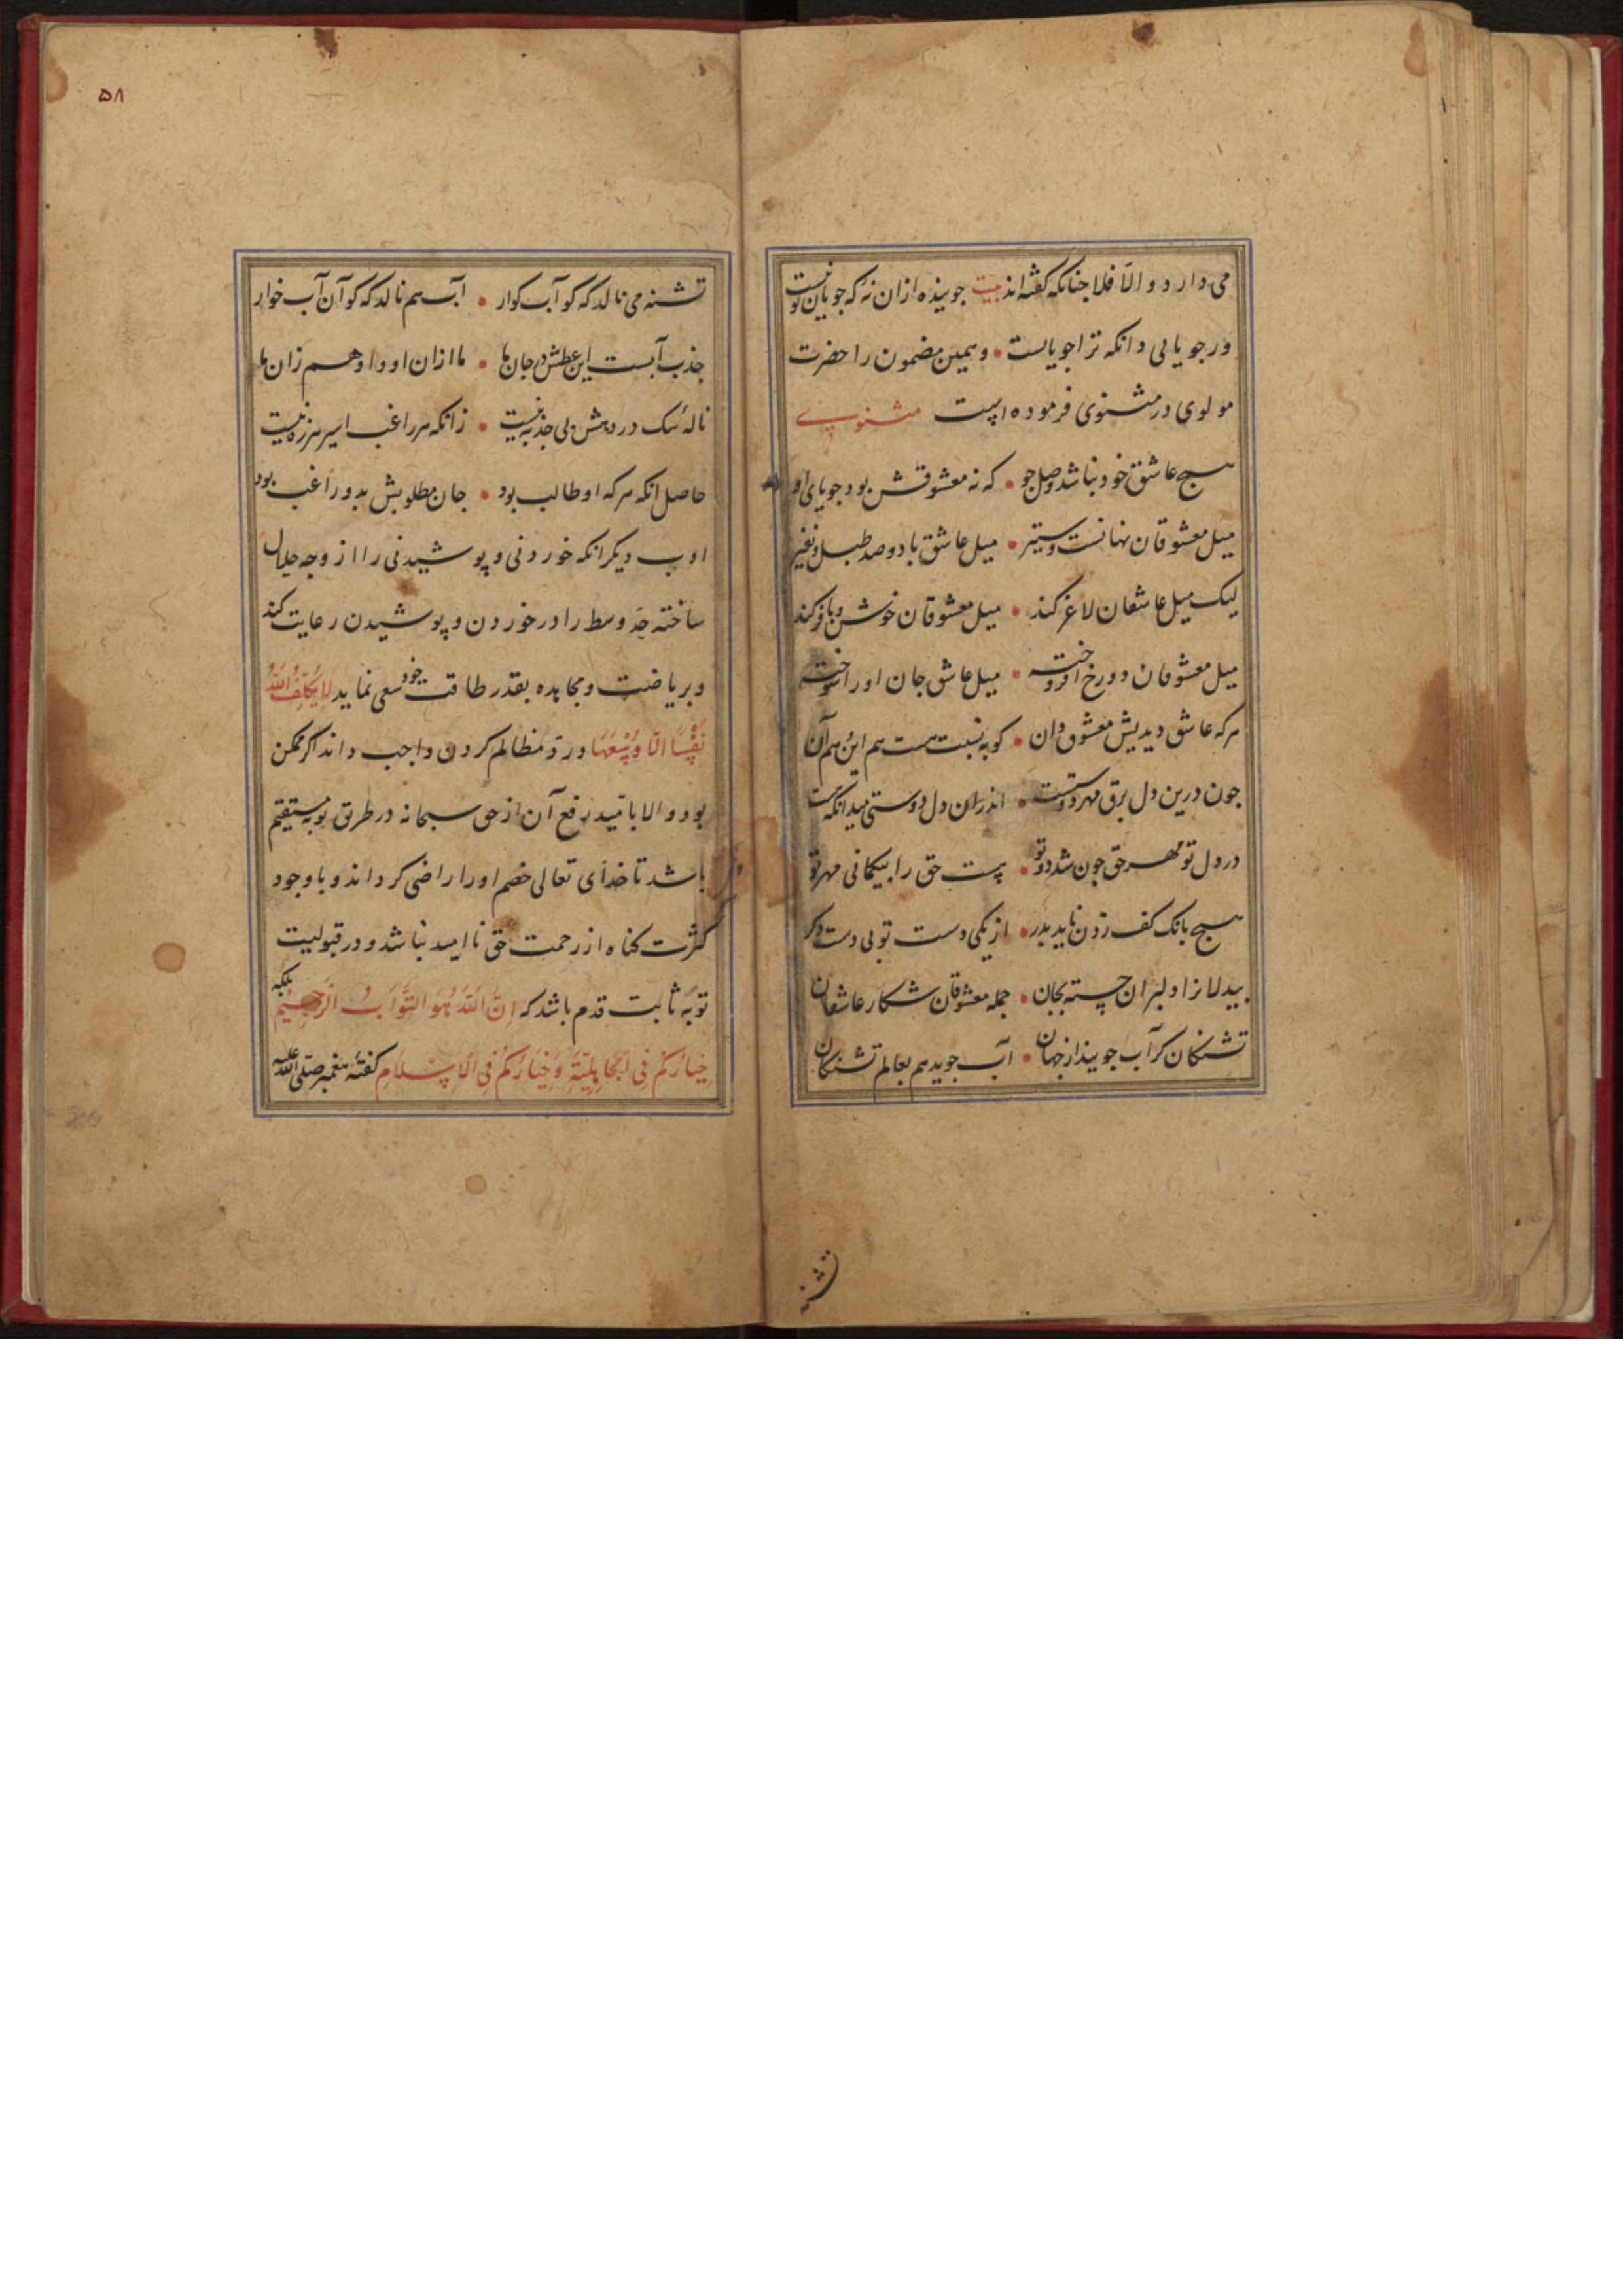 می دارد و الّا فلا جنانکه کفته اند بیت جوینده ازان نهٔ که جویان تو نیست
ور جویایی دانکه ترا جویایست • و همین مضمون را حضرت
مولوی در مثنوی فرموده است مثنوی
هیچ عاشق خود نباشد وصل جو • که نه معشوقش بود جویای او
میل معشوقان نهانست و ستیر • میل عاشق با دو صد طبل و نفیر
لیک میل عاشقان لاغر کند • میل معشوقان خوش و با فر کند
میل معشوقان دو رخ افروخته • میل عاشق جان او را سوخته
هرکه عاشق دیدیش معشوق دان • کو به نسبت هست هم این و هم آن
جون درین دل برق مهر دوست جست • اندران دل دوستی میدانکه هست
در دل تو مهر حق جون شد دو تو • هست حق را بیکمانی مهر تو
هیچ بانک کف زدن ناید بدر • از یکی دست تو بی دست دکر
بیدلانرا دلبران جسته بجان • جمله معشوقان شکار عاشقان
تشنکان کر آب جویند از جهان • آب جوید هم بعالم تشنکان
تشنه
۵۸
تشنه می نالد که کو آب کوار • آب هم نالد که کو آن آب خوار
جذب آبست این عطش در جان ما • ما ازان او و او هم زان ما
نالهٔ سک در رهش بی جذبه نیست • زانکه هر راغب اسیر رهزنیست
حاصل انکه هرکه او طالب بود • جان مطلوبش بدو راغب بود
ادب دیکر انکه خوردنی و پوشیدنی را از وجه حلال
ساخته حد وسط را در خوردن و پوشیدن رعایت کند
و بریاضت و مجاهده بقدر طاقت خود سعی نماید لَا یُکَلِّفُ اللّٰهُ
نَفْسًا اِلّا وُسْعَهَا و ردّ مظالم کردن واجب داند اکر ممکن
بود و الا بامید رفع آن از حق سبحانه در طریق توبه مستقیم
باشد تا خدای تعالی خصم او را راضی کرداند و با وجود
کثرت کناه از رحمت حق ناامید نباشد و در قبولیت
توبه ثابت قدم باشد که اِنَّ اللّٰهَ هُوَ التَّوَّابُ الرَّحِیْمُ بلکه
خِیَارُکُمْ فِی الْجَاهِلِیَّةِ وَ خِیَارُکُمْ فِی الْاِسْلَامِ کفتهٔ پیغمبر صلی الله علیه